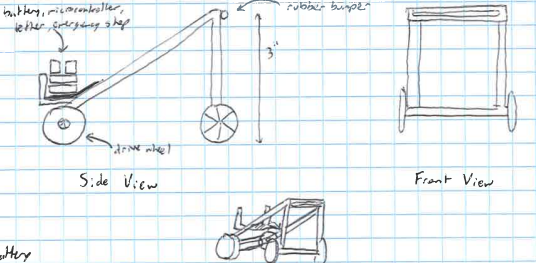 battery, microcontroller,
tether, emergency stop
rubber bumper
3"
drive wheel
Side View
Front View